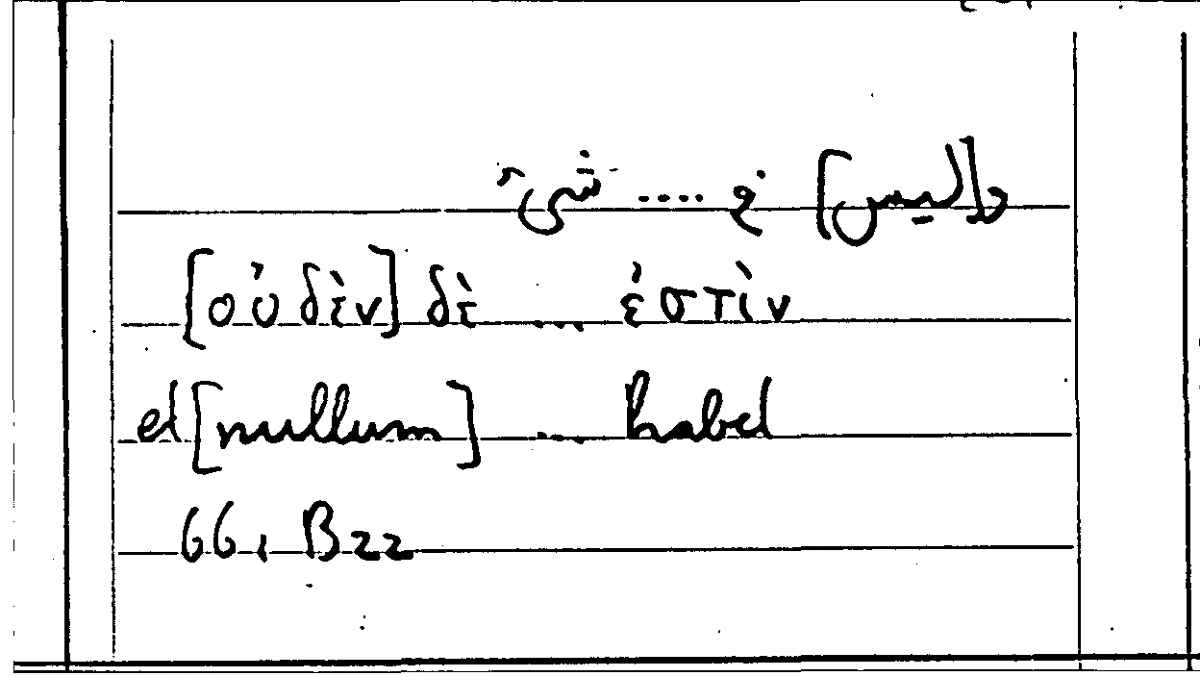 و[ليس] في .... شيء
[οὐδὲν] δὲ ... ἐστὶν
et [nullum] ... habet
66, B22